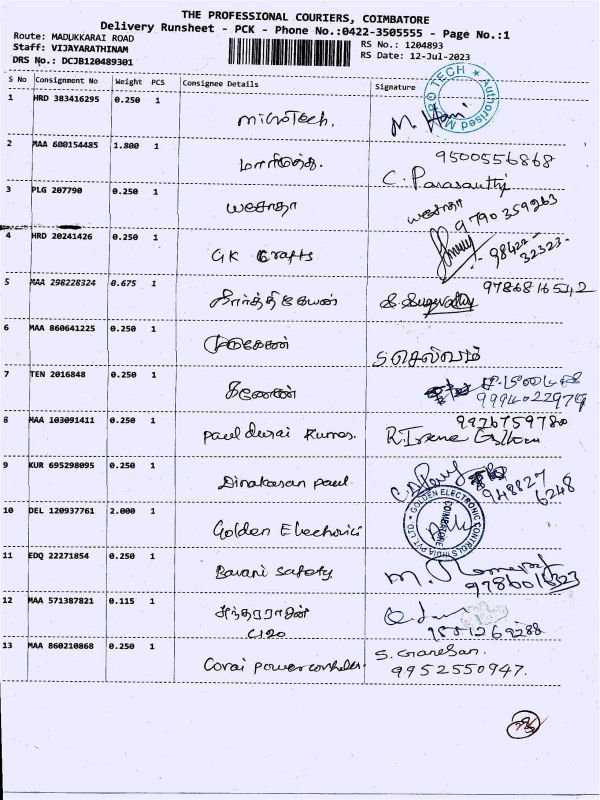 THE PROFESSIONAL COURIERS, COIMBATORE
Delivery Runsheet - PCK - Phone No.:0422-3505555 - Page No.:1
Route: MADUKKARAI ROAD
Staff: VIJAYARATHINAM
DRS No.: DCJB120489301
RS No.: 1204893
RS Date: 12-Jul-2023
S No Consignment No Weight PCS Consignee Details Signature
1 HRD 383416295 0.250 1
microTech. M. Hari
MICRO TECH ★ Authorised
2 MAA 600154485 1.800 1
9500556868
C. Parasanthi
3 PLG 207790 0.250 1
யசோதா யசோதா
9790359263
4 HRD 20241426 0.250 1
GK Crafts 98422-
32323.
5 MAA 298228324 0.675 1
கார்த்திகேயன் 9786816542
6 MAA 860641225 0.250 1
முருகேசன் S செல்வம்
7 TEN 2016848 0.250 1
கணேசன்
9994022979
8 MAA 103091411 0.250 1
9976759780
Paul durai Kumar.
9 KUR 695298095 0.250 1
Dinakaran paul
948827
6248
10 DEL 120937761 2.000 1
Golden Electronics
GOLDEN ELECTRONIC CONTROLS INDIA PVT. LTD.
COIMBATORE
11 EDQ 22271854 0.250 1
Bavani Safety
12 MAA 571387821 0.115 1
சுந்தரராஜன்
13 MAA 860210868 0.250 1
S. Ganesan.
Covai power controller.
9952550947.